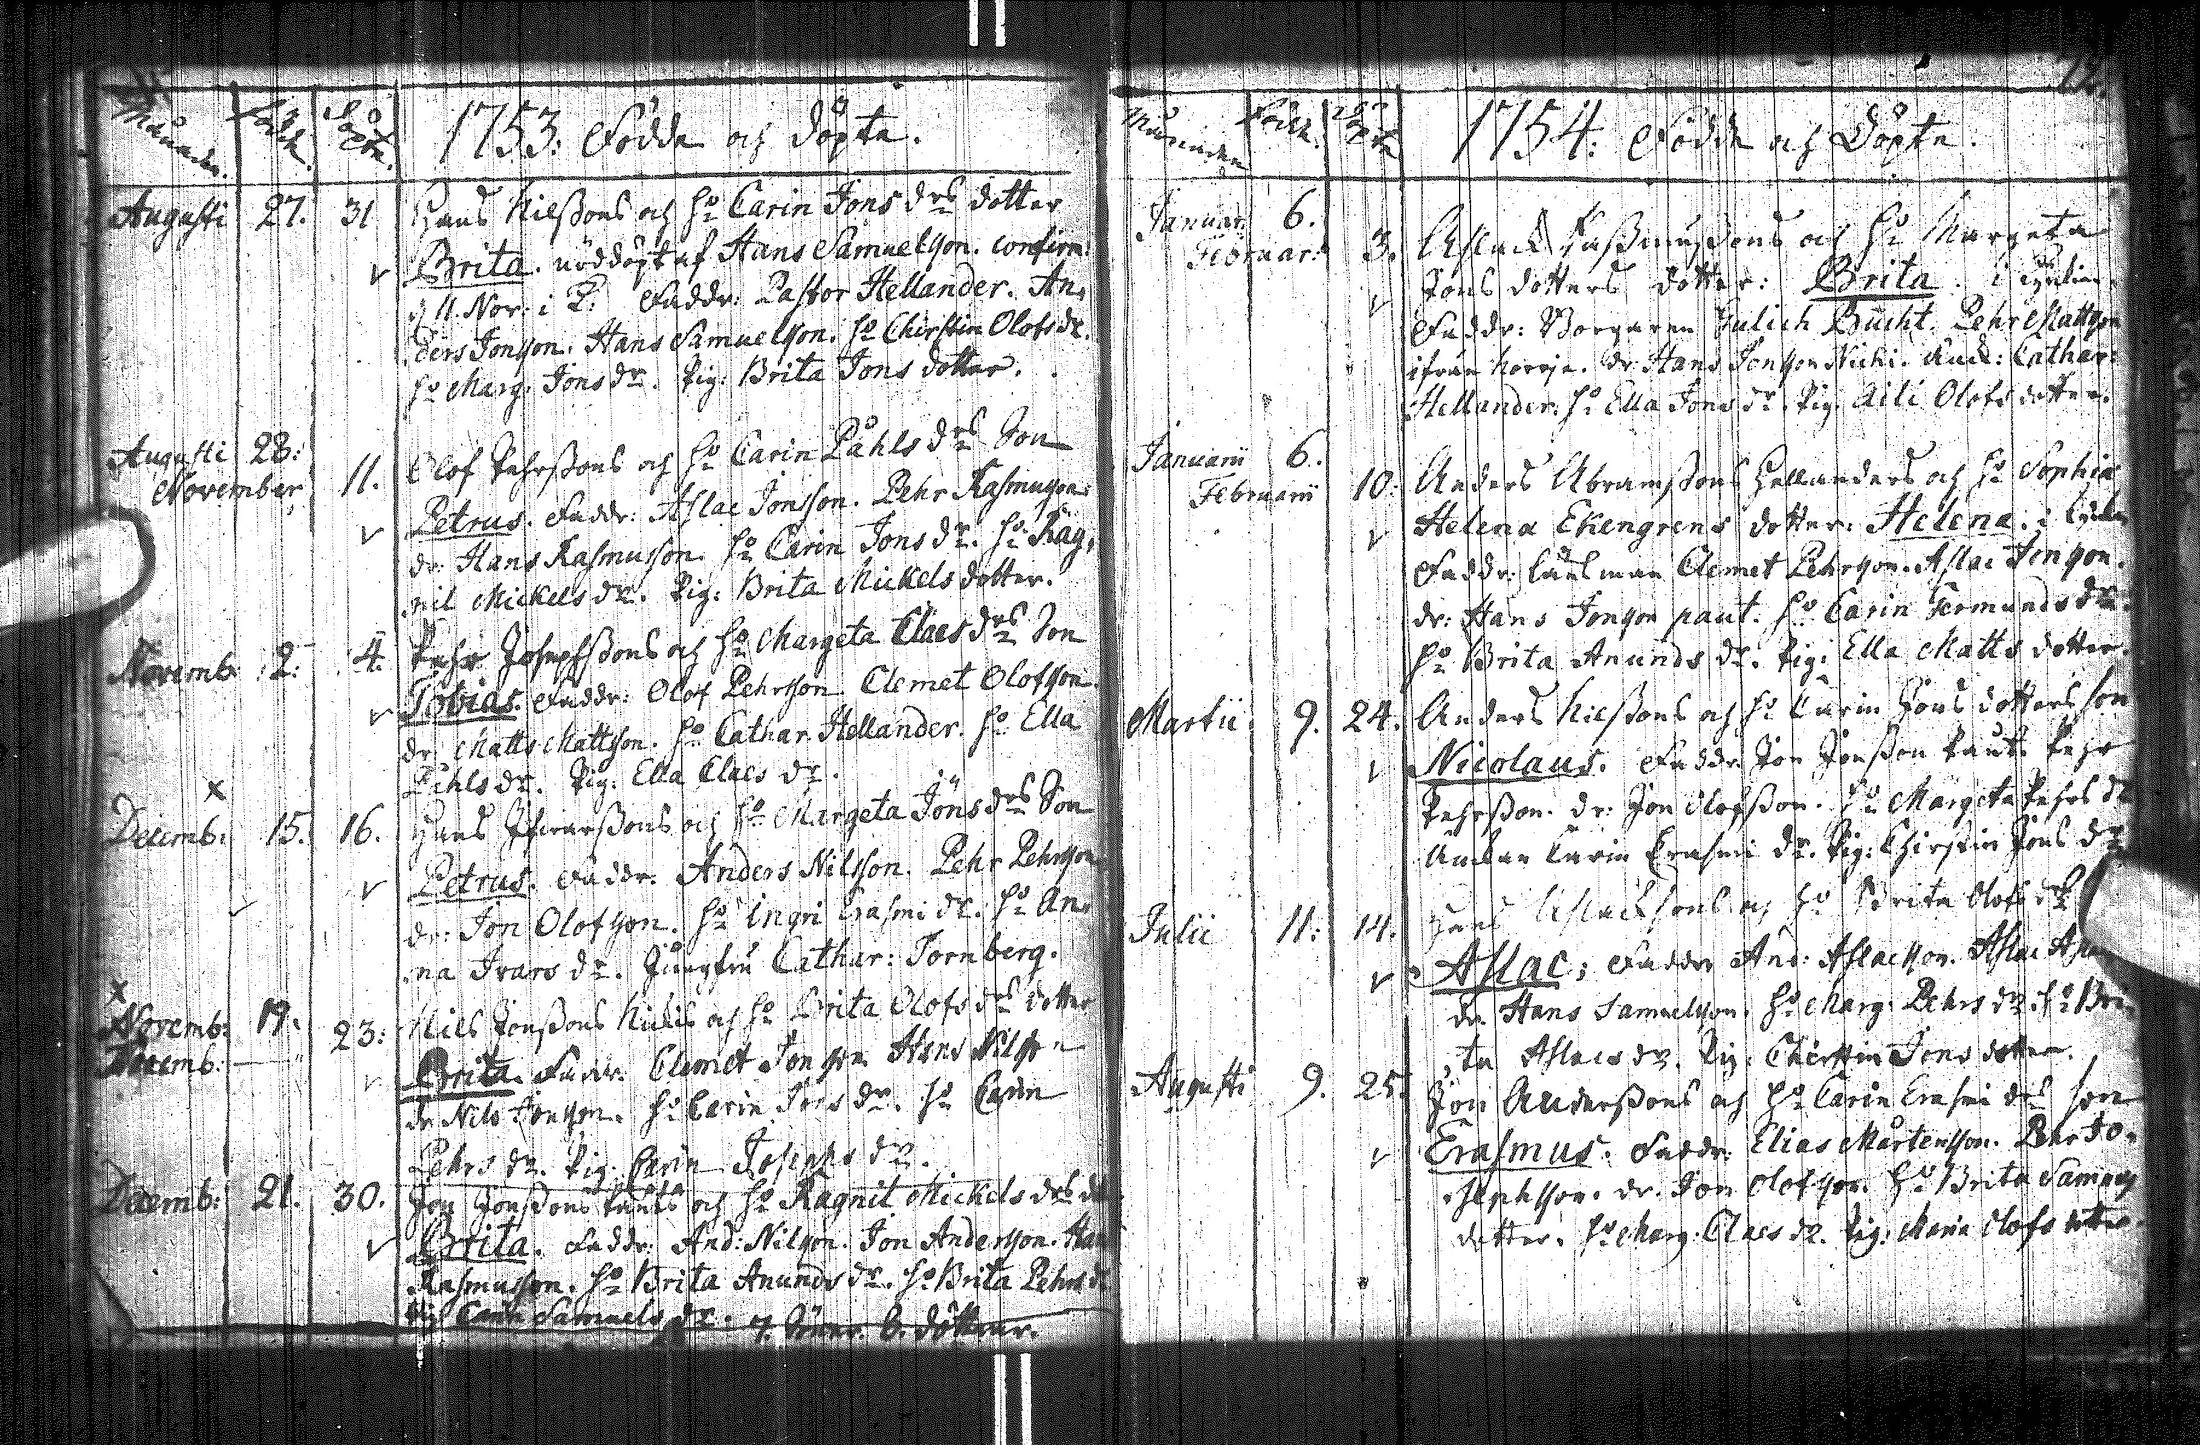 Månader. Födde. Döpte. 1753: Födde och Döpte.
Augusti 27. 31 Hans Nilssons och Ho Carin Jons drs dotter
Brita. nöddöpt af Hans Samuelson. confirm.
d. 11. Nov: i Faddr: Pastor Hellander. An-
ders Jonson. Hans Samuelson. Ho Chirstin Olofs dr.
Ho Marg: Jons dr. Pig: Brita Jons dotter.
Augusti 28: Olof Pehrssons och Ho Carin Påhls drs Son
November 11.
Petrus. Faddr: Aslac Jonsson. Pehr Rasmuson
dr: Hans Rasmusson. Ho Carin Jons dr. Ho Rag-
nil Mickels dr. Pig: Brita Mickels dotter.
Novemb: 2: 4. Pehr Josephssons och Ho Margeta Claes drs Son
Tobias. Faddr: Olof Pehrsson. Clemet Olofson
dr: Matts Mattson. Ho Cathar. Hellander. Ho Ella
Påhls dr. Pig: Ella Claes dr.
Decemb: 15. 16. Hans och Ho Margeta Jöns drs Son
Petrus. Faddr. Anders Nilsson. Pehr Pehrsson
dr: Jon Olofson. Ho Ingri Erasmi dr. Ho An-
na Ivars dr. Jungfru Cathar: Tornberg.
Novemb: 19. Nils Jonssons och Ho Brita Olofs drs dotter
Decemb: 23:
Brita. Faddr. Clemet Jonson Hans Nilson
dr Nils Jonson. Ho Carin Jons dr. Ho Carin
Pehrs dr. Pig: Carin Josephs dr.
Decemb: 21. 30. Jon Jonssons Pauts och Ho Ragnil Mickels drs
Brita. Faddr: And: Nilson. Jon Anderson. Han
Rasmusson. Ho Brita Anunds dr. Ho Brita Pehrs dr
Pig Carin Samuels dr. 7. Söner. 6. döttrar.
Månader Födde. Döpte 1754: Födde och Döpte.
Januar: 6. Aslack Rassmussons och Ho Margeta
Februar: 3.
Jons dotters dotter: Brita. i kyrkan.
Faddr: Borgaren Bucht. Pehr Mattson
ifrån Dr Hans Jonson Nicki. Cathar:
Hellander. Ho Ella Jons dr. Pig. Aili Olofs dotter.
Januarii 6. Anders Abramssons Hellanders och Ho Sophia
Februarii 10.
Helena Ekengrens dotter: Helena. i kyrkan
Faddr: Länsman Clemet Pehrson. Aslac Jonson.
dr: Hans Jonson paut. Ho Carin Germunds dr.
Ho Brita Anunds dr. Pig: Ella Matts dotter.
Martii 9. 24. Anders Nilssons och Ho Carin Jons dotters son
Nicolaus. Faddr. Jon Jonsson Paut. Pehr
Pehrsson. dr: Jon Olofsson. Ho Margeta Pehrs dr
Carin Erasmi dr. Pig: Chirstin Jons dr
Julii 11. 14. Hans Aslacksons och Ho Brita Olofs drs
Aslac; Faddr And: Aslacson. Aslac
dr. Hans Samuelson. Ho Marg: Pehrs dr. Ho Bri-
ta Aslacs dr. Pig: Cherstin Jons dotter.
Augusti 9. 25. Jon Anderssons och Ho Carin Erasmi drs son
Erasmus. Faddr: Elias Mårtensson. Pehr Jo-
sephsson. dr. Jon Olofson. Ho Brita Samuels
dotter. Ho Marg: Claes dr. Pig: Maria Olofs dotter.